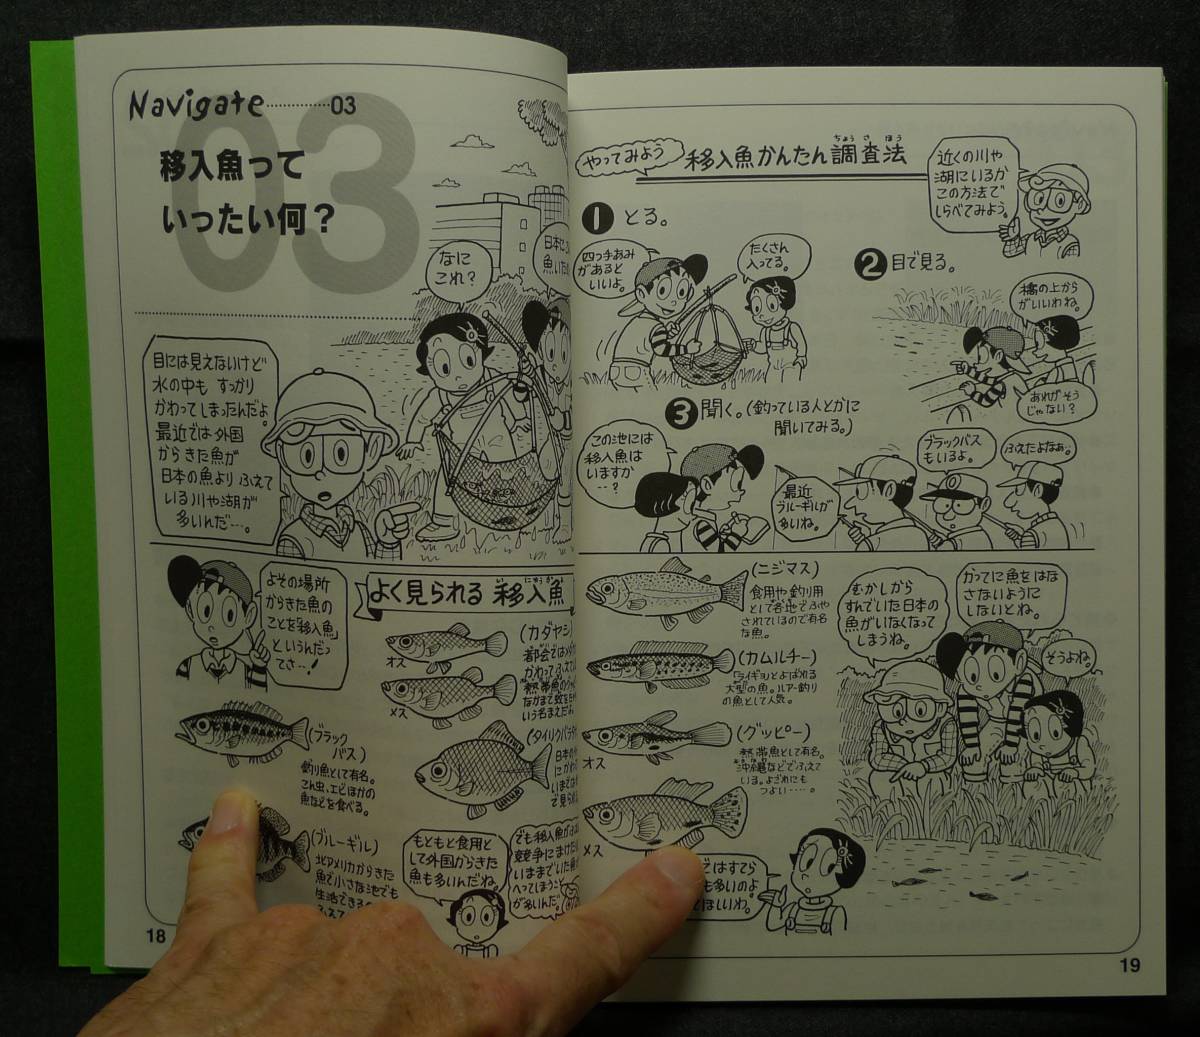 Navigate
03
03
移入魚って
いったい何？
なに
これ？
日本に
魚いた
目には見えないけど
水の中も すっかり
かわってしまったんだよ。
最近では外国
からきた魚が
日本の魚より ふえて
いる川や湖が
多いんだ…。
よその場所
からきた魚の
ことを「移入魚」
というんだっ
てさ…！
よく見られる 移入魚
いにゅうぎょ
オス
メス
(カダヤシ)
都会では
かわって
熱帯魚の
なかまで蚊を
いう名まえだ
(タイリクバラタ
日本の
にか
いまでは
で見られ
(ブラック
バス)
釣り魚として有名。
こん虫、エビほかの
魚などを食べる。
(ブルーギル)
北アメリカからきた
魚で小さな池でも
生活できる
ふえて
もともと食用と
して外国からきた
魚も多いんだね。
でも移入魚が
競争にまけた
いままでいた魚が
へってしまうこと
が多いんだ。
18
やってみよう
移入魚かんたん調査法
ちょう さ ほう
近くの川や
湖にいるか
この方法で
しらべてみよう。
1 とる。
四つ手あみ
があると
いいよ。
たくさん
入ってる。
2 目で見る。
橋の上から
がいいわね。
あれがそう
じゃない？
3 聞く。(釣っている人とかに
聞いてみる。)
この池には
移入魚は
いますか
…？
最近
ブルーギルが
多いね。
ブラックバス
もいるよ。
ふえたよなぁ。
(ニジマス)
食用や釣り用
として各地でふや
されているので有名
な魚。
(カムルチー)
「ライギョ」とよばれる
大型の魚。ルアー釣り
の魚として人気。
オス
(グッピー)
熱帯魚として有名。
沖縄などでふえて
いる。よごれにも
つよい……。
メス
むかしから
すんでいた日本の
魚がいなくなって
しまうね。
かってに魚をはな
さないように
しないとね。
そうよね。
ではすてら
も多いのよ
とほしいわ。
19